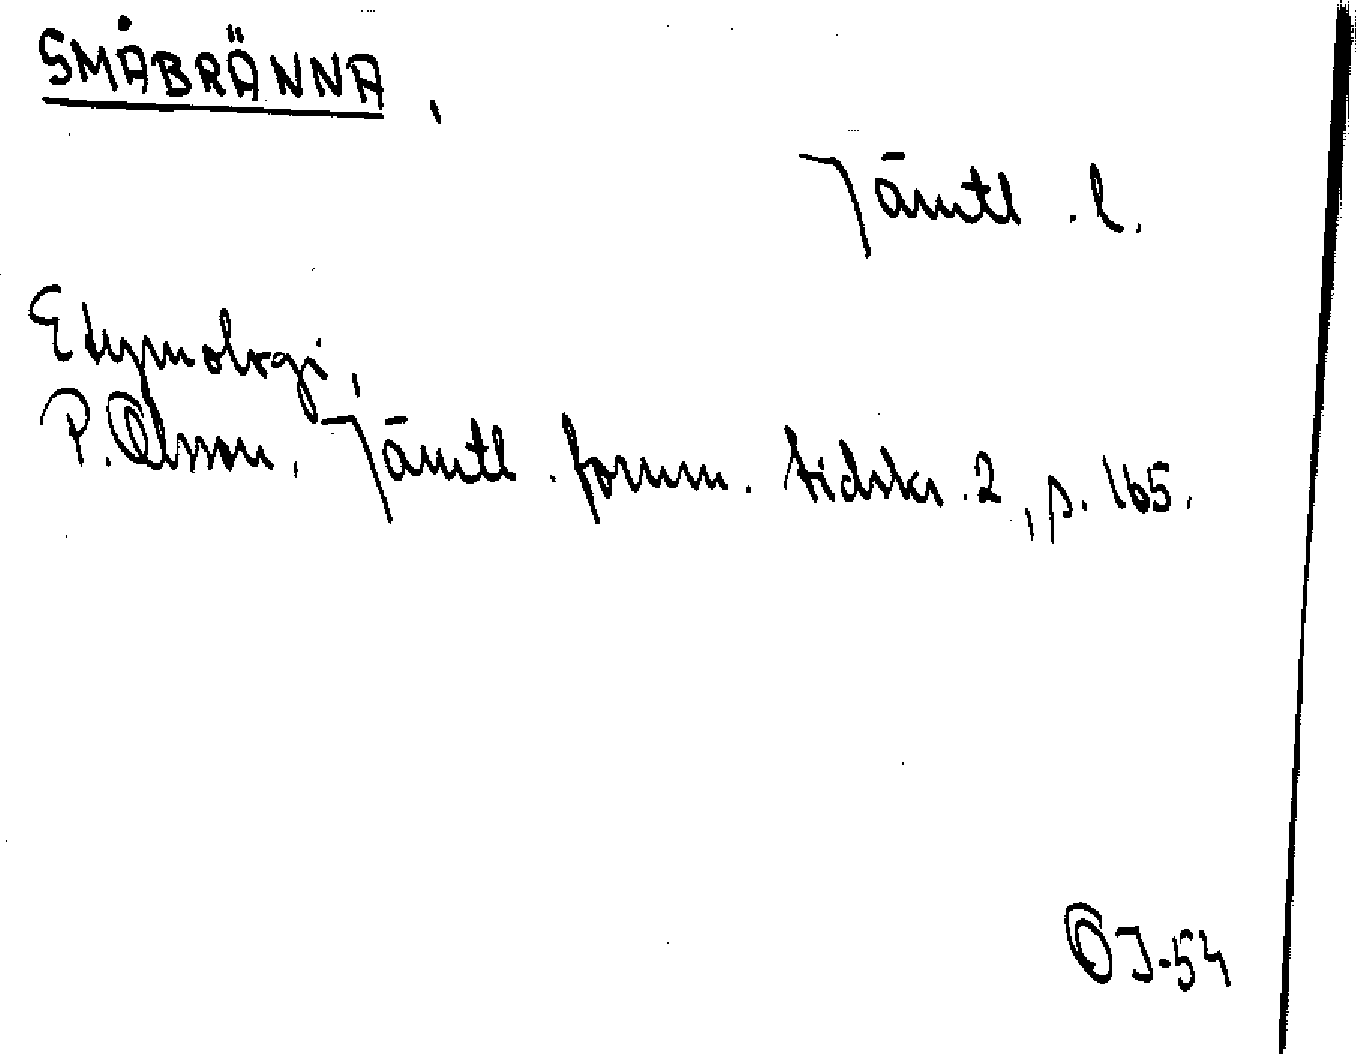 SMÅBRÄNNA,
Jämtl. l.
Etymologi,
P. Olsson, Jämtl. fornm. tidskr. 2, p. 165.
OJ-54